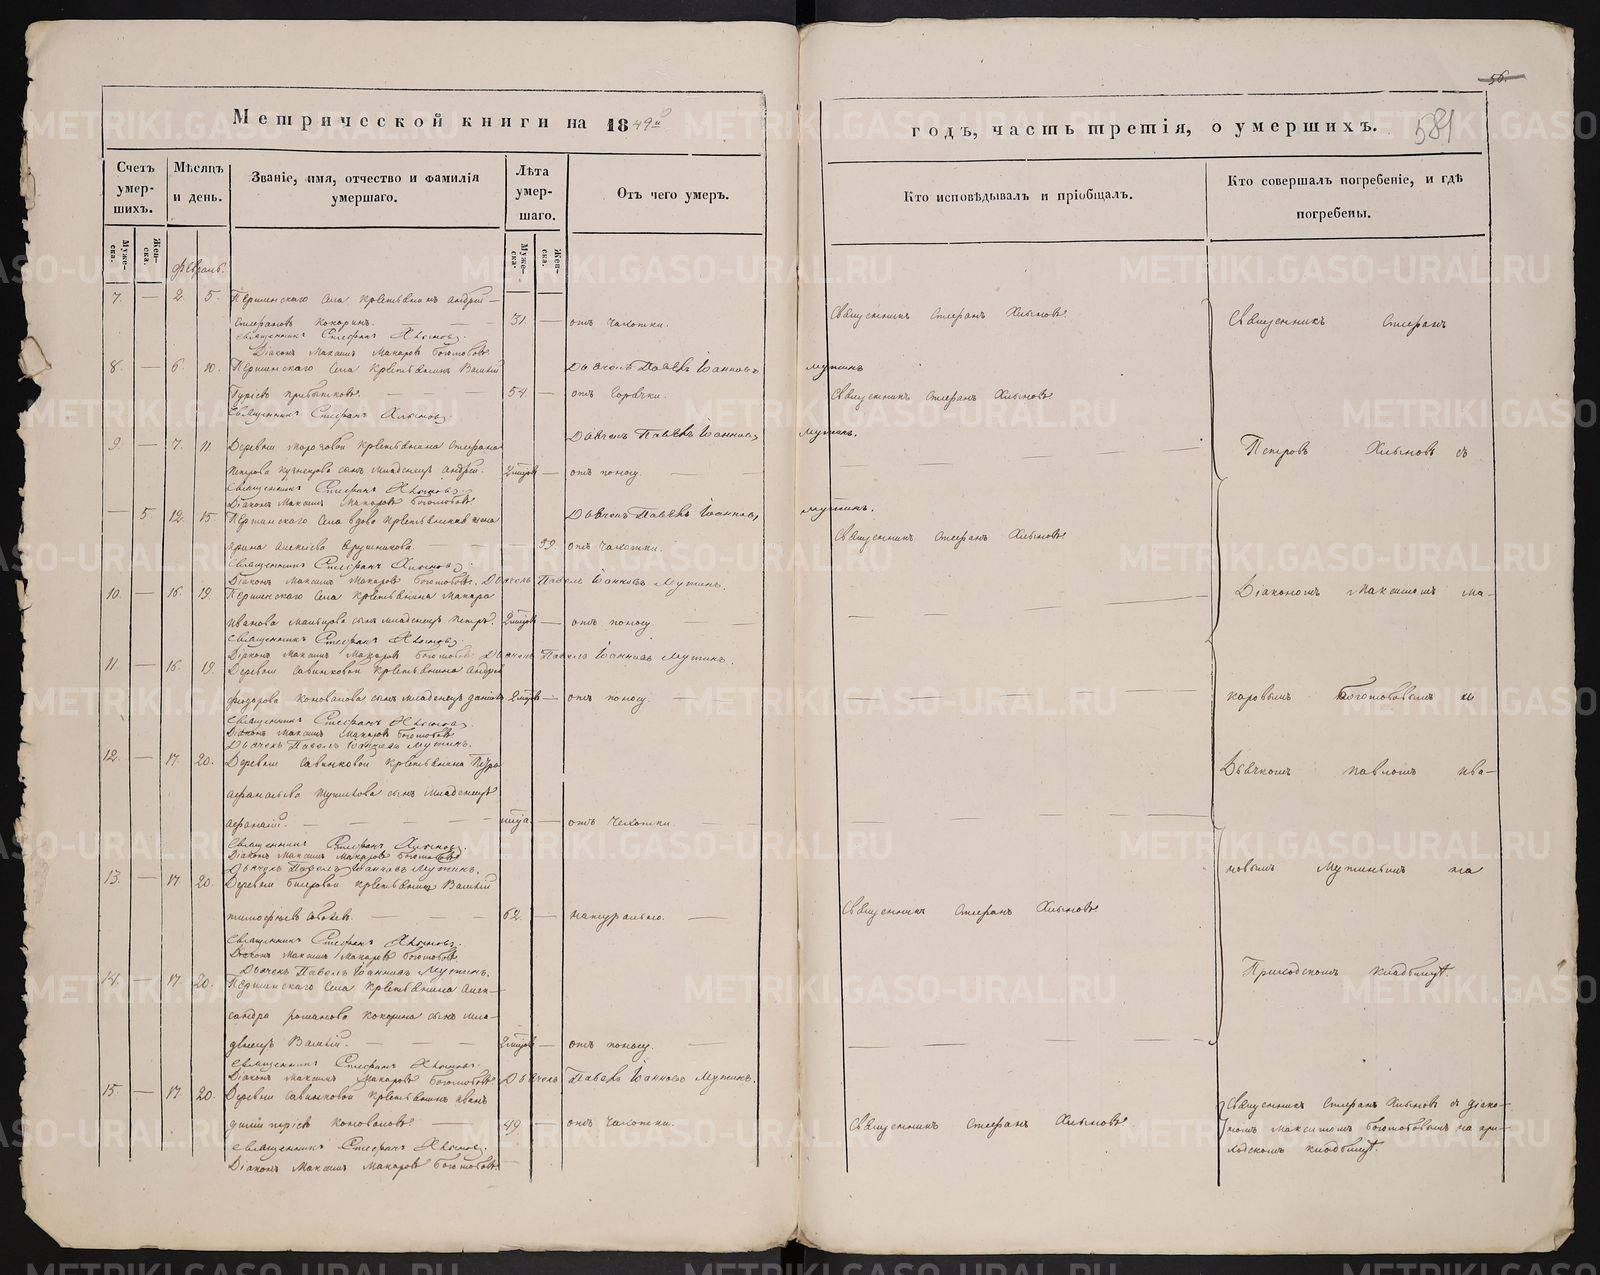 56.
Метрической книги на 1849й
годъ, часть третія, о умершихъ.
581
Счетъ умер-шихъ.
Мѣсяцъ и день.
Званіе, имя, отчество и фамилія умершаго.
Лѣта умер-шаго.
Отъ чего умеръ.
Кто исповѣдывалъ и пріобщалъ.
Кто совершалъ погребеніе, и гдѣ погребены.
Муже-ска.
Жен-ска.
Муже-ска.
Жен-ска.
Февраль.
7. — 2. 5. Першинскаго села крестьянинъ Андрей
Стефановъ Кокоринъ. — 31. — отъ чахотки. Священникъ Стефанъ Хлыновъ Священникъ Стефанъ
Священникъ Стефанъ Хлыновъ.
Діаконъ Максимъ Макаровъ Боголюбовъ
8. — 6. 10. Першинскаго села крестьянинъ Василій Дьячекъ Павелъ Іоанновъ Мутинъ
54. — отъ горячки. Священникъ Стефанъ Хлыновъ
Священникъ Стефанъ Хлыновъ.
9. — 7. 11. Деревни крестьянина Стефана Дьячекъ Павелъ Іоанновъ Мутинъ. Петровъ Хлыновъ съ
Петрова Кузнецова сынъ младенецъ Андрей. — отъ поносу.
Священникъ Стефанъ Хлыновъ.
Діаконъ Максимъ Макаровъ Боголюбовъ
— 5. 12. 15. Першинскаго села вдова крестьянская жена Дьячекъ Павелъ Іоанновъ Мутинъ.
Ирина Алексѣева — отъ чахотки. Священникъ Стефанъ Хлыновъ
Священникъ Стефанъ Хлыновъ.
Діаконъ Максимъ Макаровъ Боголюбовъ. Дьячекъ Павелъ Іоанновъ Мутинъ.
10. — 16. 19. Першинскаго села крестьянина Макара Діакономъ Максимомъ Ма-
Иванова сынъ младенецъ Петръ. — отъ поносу.
Священникъ Стефанъ Хлыновъ.
Діаконъ Максимъ Макаровъ Боголюбовъ Дьячекъ Павелъ Іоанновъ Мутинъ.
11. — 16. 19. Деревни Савинковой крестьянина Андрея
Федорова Коновалова сынъ младенецъ — отъ поносу. каровымъ Боголюбовымъ и
Священникъ Стефанъ Хлыновъ.
Діаконъ Максимъ Макаровъ Боголюбовъ
Дьячекъ Павелъ Іоанновъ Мутинъ.
12. — 17. 20. Деревни Савинковой крестьянина Петра Дьячкомъ Павломъ Ива-
Афанасьева сынъ младенецъ
Афанасій. — отъ чахотки.
Священникъ Стефанъ Хлыновъ.
Діаконъ Максимъ Макаровъ Боголюбовъ
Дьячекъ Павелъ Іоанновъ Мутинъ. новымъ Мутинымъ на
13. — 17. 20. Деревни крестьянинъ Василій
Тимофѣевъ — 62. — натурально. Священникъ Стефанъ Хлыновъ
Священникъ Стефанъ Хлыновъ.
Діаконъ Максимъ Макаровъ Боголюбовъ
Дьячекъ Павелъ Іоанновъ Мутинъ. Приходскомъ кладбищѣ.
14. — 17. 20. Першинскаго села крестьянина Алек-
сандра Романова Кокорина сынъ мла-
денецъ Василій. — отъ поносу.
Священникъ Стефанъ Хлыновъ.
Діаконъ Максимъ Макаровъ Боголюбовъ Дьячекъ Павелъ Іоанновъ Мутинъ.
15. — 17. 20. Деревни Савинковой крестьянинъ Иванъ Священникъ Стефанъ Хлыновъ съ діако-
Коноваловъ — 49 — отъ чахотки. Священникъ Стефанъ Хлыновъ номъ Максимомъ Боголюбовымъ на при-
Священникъ Стефанъ Хлыновъ. ходскомъ кладбищѣ.
Діаконъ Максимъ Макаровъ Боголюбовъ
METRIKI.GASO-URAL.RU